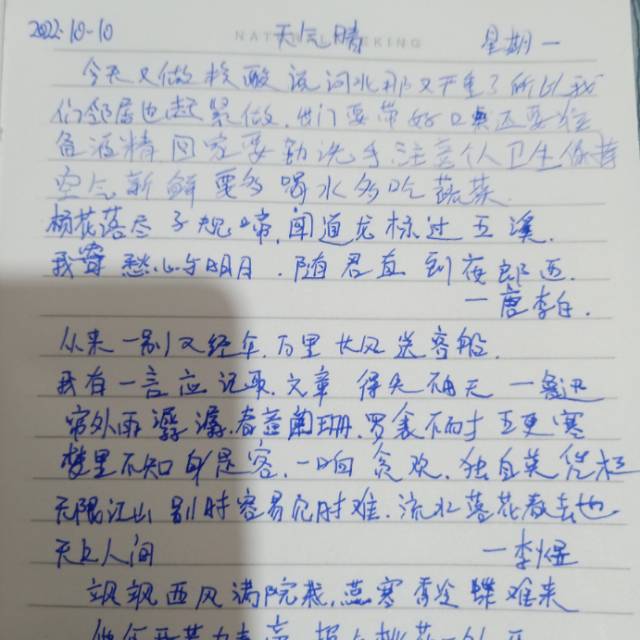 2022-10-10 天气晴 星期一
今天又做核酸说河北那又严重了所以我
们邻居也赶紧做,出门要带好口罩还要拴
鱼酒精回家要勤洗手,注意个人卫生保持
空气新鲜要多喝水多吃蔬菜.
杨花落尽子规啼,闻道龙标过五溪.
我寄愁心与明月.随君直到夜郎西.
一唐李白.
从来一别又经年,万里长风送客船.
我有一言应记取,文章得失不由天 一鲁迅
帘外雨潺潺,春意阑珊,罗衾不耐五更寒
梦里不知身是客,一晌贪欢.独自莫凭栏
无限江山别时容易见时难.流水落花春去也
天上人间 一李煜
飒飒西风满院栽,蕊寒香冷蝶难来
他年我若为青帝,报与桃花一处开